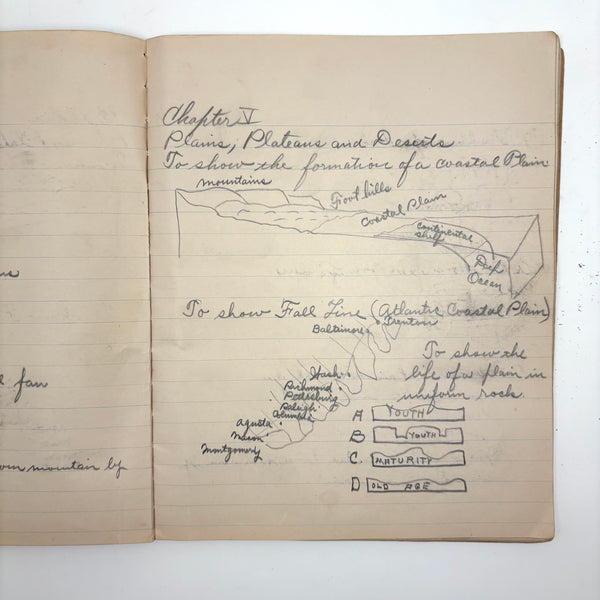 fan
mountain by
Chapter V
Plains, Plateaus and Deserts.
To show the formation of a coastal Plain
mountains
Foot hills
Coastal Plain
continental
shelf
Deep
Ocean
To show Fall Line (Atlantic Coastal Plain)
Trenton
Baltimore
To show the
life of a plain in
uniform rock.
Wash.
Richmond
Petersburg
Raleigh
Agusta
Macon
Montgomery
A YOUTH
B YOUTH
C MATURITY
D OLD AGE